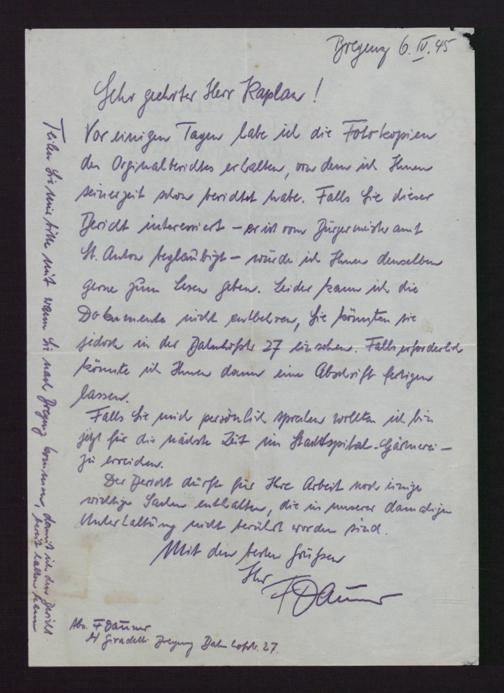 Bregenz 6. IV. 45
Sehr geehrter Herr Kaplan!
Vor einigen Tagen habe ich die Fotokopien
des Orginalberichtes erhalten, von dem ich Ihnen
seinerzeit schon berichtet habe. Falls Sie dieser
Bericht interessiert – er ist vom Bürgermeisteramt
St. Anton beglaubigt – würde ich Ihnen denselben
gerne zum Lesen geben. Leider kann ich die
Dokumente nicht entbehren, Sie könnten sie
jedoch in der Bahnhofstr. 27 einsehen. Falls erforderlich
könnte ich Ihnen dann eine Abschrift fertigen
lassen.
Falls Sie mich persönlich sprechen wollten ich bin
jetzt für die nächste Zeit im Stadtspital-Gärtnerei –
zu erreichen.
Der Bericht dürfte für Ihre Arbeit noch einige
wichtige Sachen enthalten, die in unserer damaligen
Unterhaltung nicht berührt worden sind.
Mit den besten Grüßen
Ihr
F Daumer
Abs. F Daumer
Bregenz Bahnhofstr. 27.
Teilen Sie mir bitte mit wann Sie nach Bregenz kommen, damit ich den Bericht
bereit halten kann